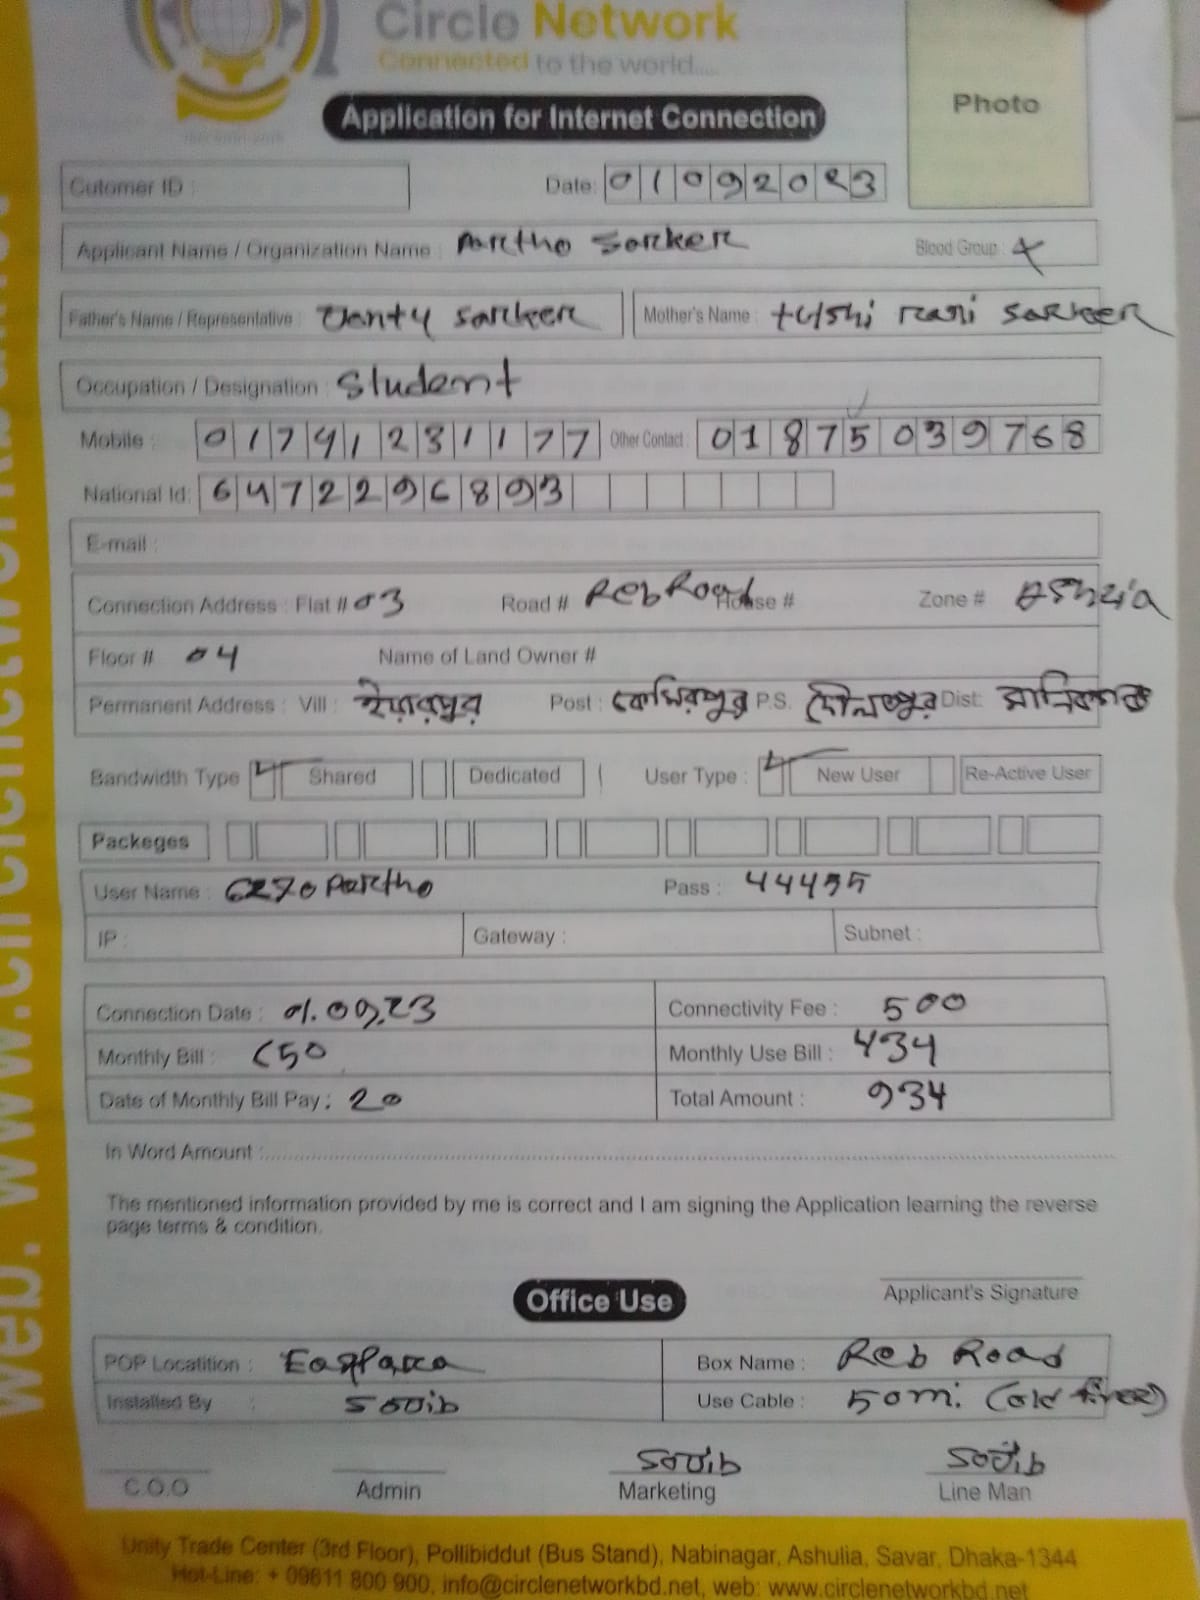 Circle Network
Connected to the world....
Application for Internet Connection
Photo
Cutomer ID :
Date: 01092023
Applicant Name / Organization Name : Partho Sarker
Blood Group :
Father's Name / Representative : Jenty Sarker
Mother's Name : tulshi rani Sarker
Occupation / Designation : Student
Mobile : 01741231177 Other Contact : 01875039768
National Id: 6472296893
E-mail :
Connection Address : Flat # 03 Road # Reb Road House # Zone # Ashulia
Floor # 04 Name of Land Owner #
Permanent Address : Vill : Post : P.S. দৌলতপুর Dist: মানিকগঞ্জ
Bandwidth Type Shared Dedicated User Type : New User Re-Active User
Packeges
User Name : 6270 Partho Pass : 44455
IP : Gateway : Subnet :
Connection Date : 01.09.23 Connectivity Fee : 500
Monthly Bill : 650 Monthly Use Bill : 434
Date of Monthly Bill Pay : 20 Total Amount : 934
In Word Amount :
The mentioned information provided by me is correct and I am signing the Application learning the reverse
page terms & condition.
Applicant's Signature
Office Use
POP Locatition : Box Name : Reb Road
Installed By : Sojib Use Cable : 50 m. (old fiber)
Sojib Sojib
C.O.O Admin Marketing Line Man
Unity Trade Center (3rd Floor), Pollibiddut (Bus Stand), Nabinagar, Ashulia, Savar, Dhaka-1344
Hot-Line: + 09611 800 900, info@circlenetworkbd.net, web: www.circlenetworkbd.net
web: www.circlenetworkbd.net